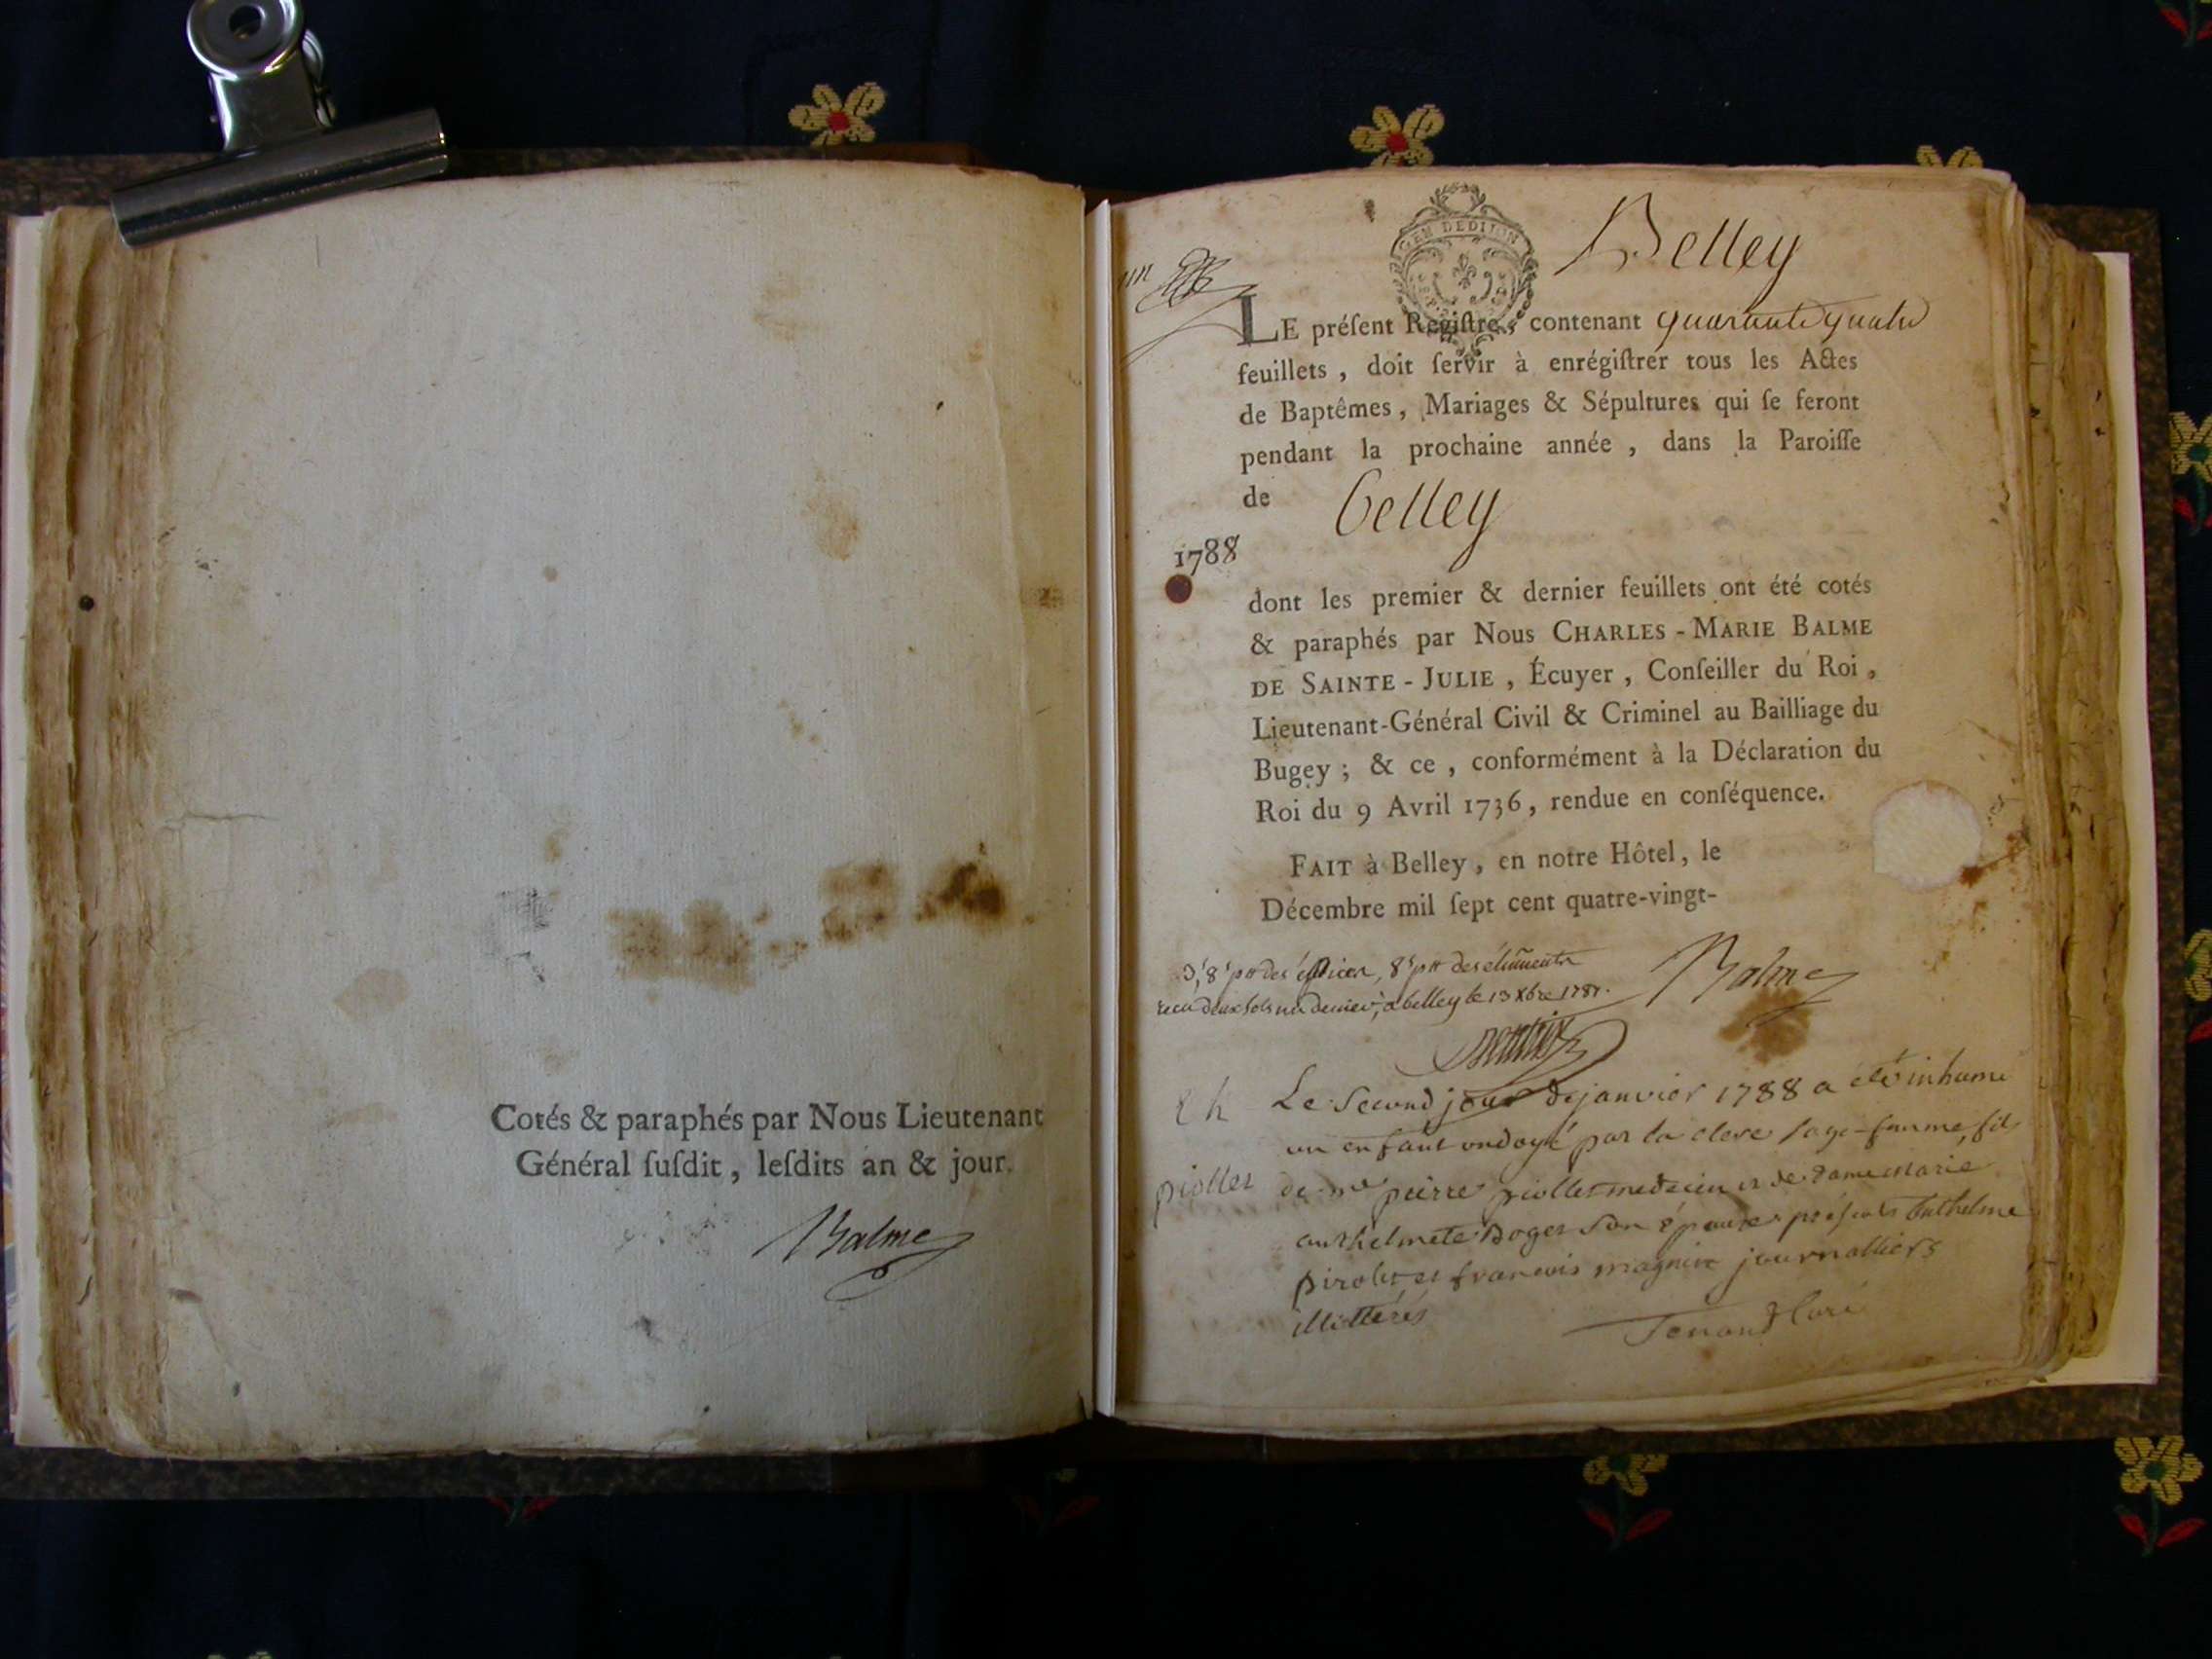 Cotés & paraphés par Nous Lieutenant
Général ſuſdit, leſdits an & jour.
Balme
GEN DE DIJON
Belley
un
LE préſent Regiſtre, contenant quarante quatre
feuillets, doit ſervir à enrégiſtrer tous les Actes
de Baptêmes, Mariages & Sépultures qui ſe feront
pendant la prochaine année, dans la Paroiſſe
de belley
1788
dont les premier & dernier feuillets ont été cotés
& paraphés par Nous CHARLES-MARIE BALME
DE SAINTE-JULIE, Écuyer, Conſeiller du Roi,
Lieutenant-Général Civil & Criminel au Bailliage du
Bugey; & ce, conformément à la Déclaration du
Roi du 9 Avril 1736, rendue en conſéquence.
FAIT à Belley, en notre Hôtel, le
Décembre mil ſept cent quatre-vingt-
Balme
recu deux sols un denier, a belley le 13 Xbre 1787.
Le Second jour de janvier 1788 a été inhumé
un enfant ondoyé par la clere sage-femme, fils
piollet
de me pierre piollet medecin et de dame Marie
anthelmete Doger son épouse présents anthelme
pirolet et francois magnin journalliers
illittérés